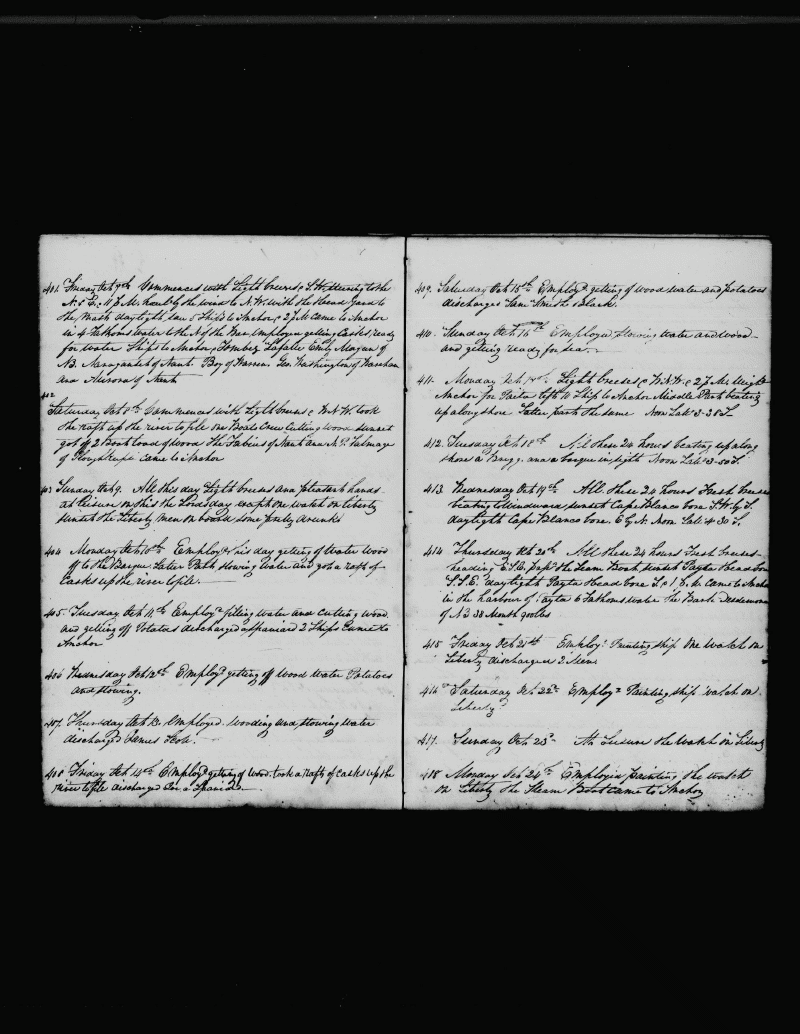 401. Friday Oct 7th Commences with Light breeses S.W. steering to the
N. & E. 11 P.M. hauld by the wind to N.W. with the Head Yard to
the Mast, daylight saw 5 Ships to Anchor, 2 P.M. Came to Anchor
in 4 Fathoms Water to the N of the River, Employed getting Casks ready
for water Ship to Anchor, Tombez, Lafalle Emily Morgan of
N.B. Navigator of Nant. Boy of Warren, Geo. Washington of Wareham
and Aurora of Nant
402
Saturday Oct 8th Commences with Light breeses N.N.W. took
the raft up the river to fill one Boats Crew Cutting wood sunset
got off 2 Boat loads of wood The Fabius of Nant and N.P. Talmage
of Ploughkepsi came to Anchor
403 Sunday Oct 9. All this day Light breeses and pleasant hands
at leisure on this the Lords day except one watch on liberty
sunset the Liberty men on board some partly drunk
404 Monday Oct 10th Employd this day getting of Water Wood
off to the Barque. Latter Part stowing Water and got a raft of
Casks up the river to fill.
405. Tuesday Oct 11th Employd filling water and Cutting Wood
and getting off Potatos discharged a Spaniard 2 Ships Came to
Anchor
406 Wednesday Oct 12th Employd getting off wood water Potatoes
and stowing.
407 Thursday Oct 13. Employed Wooding and stowing water
discharged James
408 Friday Oct 14th Employd getting of wood. took a raft of Casks up the
river to fill discharged a Spaniard.
409. Saturday Oct 15th Employd getting of wood water and potatoes
discharged Smith Black
410. Sunday Oct 16th Employed stowing water and wood
and getting ready for sea.
411. Monday Oct 17th Light breeses N.N.W. 2 P.M. Weighed
Anchor for Paita left 11 Ship to Anchor Middle Part beating
up along shore Latter part the same Noon Latt 3-28 S.
412. Tuesday Oct 18th All these 24 hours beating up along
shore a Brig and a barque in sight Noon Latt 3-50 S.
413 Wednesday Oct 19th All these 24 hours Fresh breeses
beating to Windward sunset Cape Blanco bore S.W. by S.
daylight Cape Blanco bore E by N. Noon Latt 4 30 S.
414 Thursday Oct 20th All these 24 hours Fresh breeses
heading E.S.E. passd the Steam Boat, sunset Payta Head bore
S.S.E. daylight Payta Head bore S. 1 P.M. came to Anchor
in the harbour of Payta 6 Fathoms water The Bark Desdemona
of N.B 38 Month 900 bls
415 Friday Oct 21st Employd Painting ship One watch on
Liberty discharged 2 Men
416 Saturday Oct 22nd Employd Painting ship watch on
Liberty
417. Sunday Oct. 23d At Leisure the watch on Liberty
418 Monday Oct 24th Employed painting the watch
on Liberty the Steam Boat came to Anchor